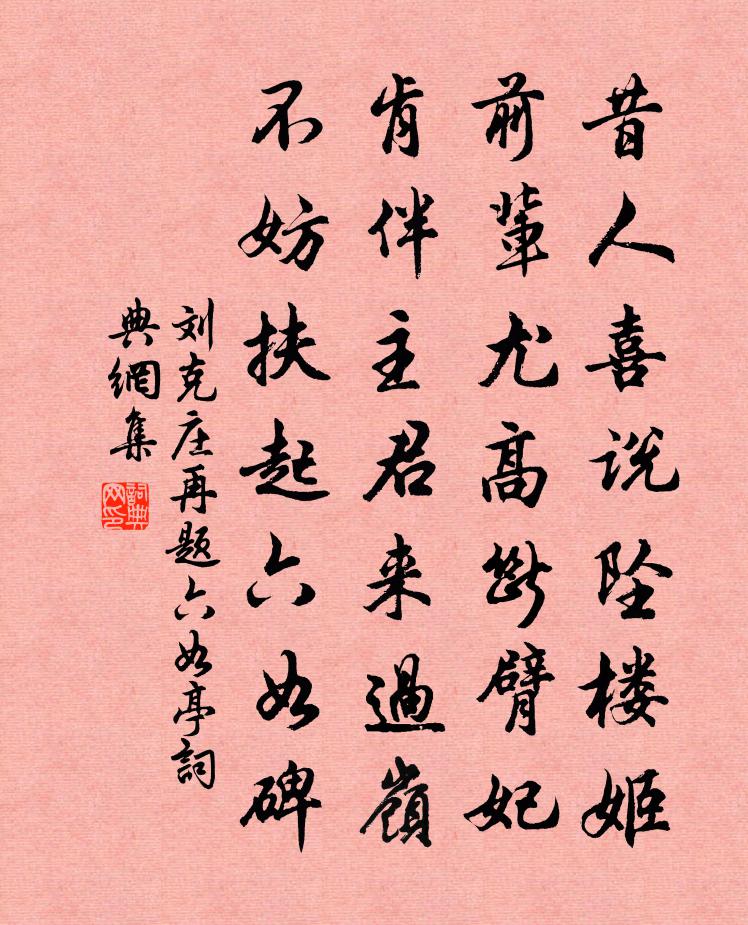 昔人喜说坠楼姬
前輩尤高斷臂妃
肯伴主君来過嶺
不妨扶起六如碑
刘克庄再题六如亭詞
典網集
詞典
网印